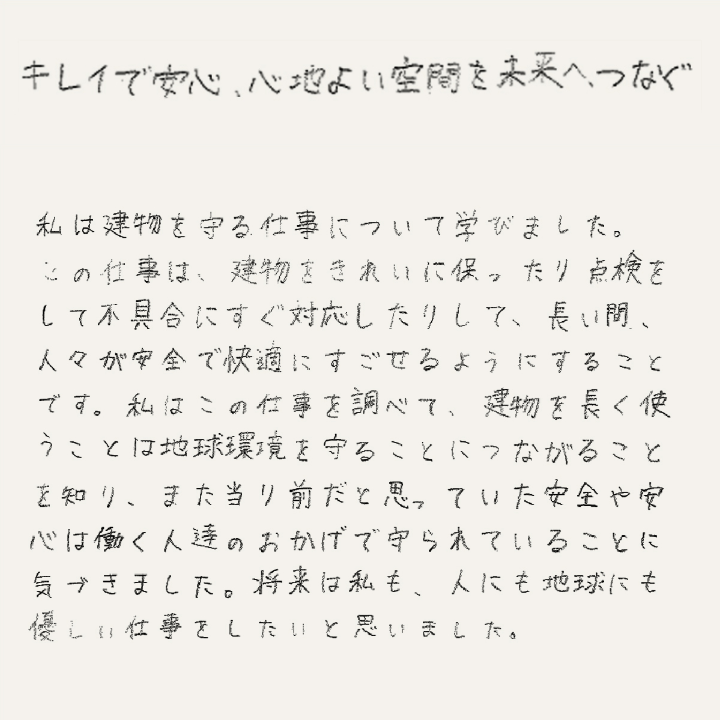 キレイで安心、心地よい空間を未来へ、つなぐ
私は建物を守る仕事について学びました。
この仕事は、建物をきれいに保ったり点検を
して不具合にすぐ対応したりして、長い間、
人々が安全で快適にすごせるようにすること
です。私はこの仕事を調べて、建物を長く使
うことは地球環境を守ることにつながること
を知り、また当り前だと思っていた安全や安
心は働く人達のおかげで守られていることに
気づきました。将来は私も、人にも地球にも
優しい仕事をしたいと思いました。